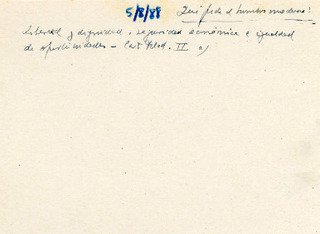 5/8/88 Qué pide el hombre moderno?
Libertad y dignidad, seguridad económica e igualdad
de oportunidades - II a)